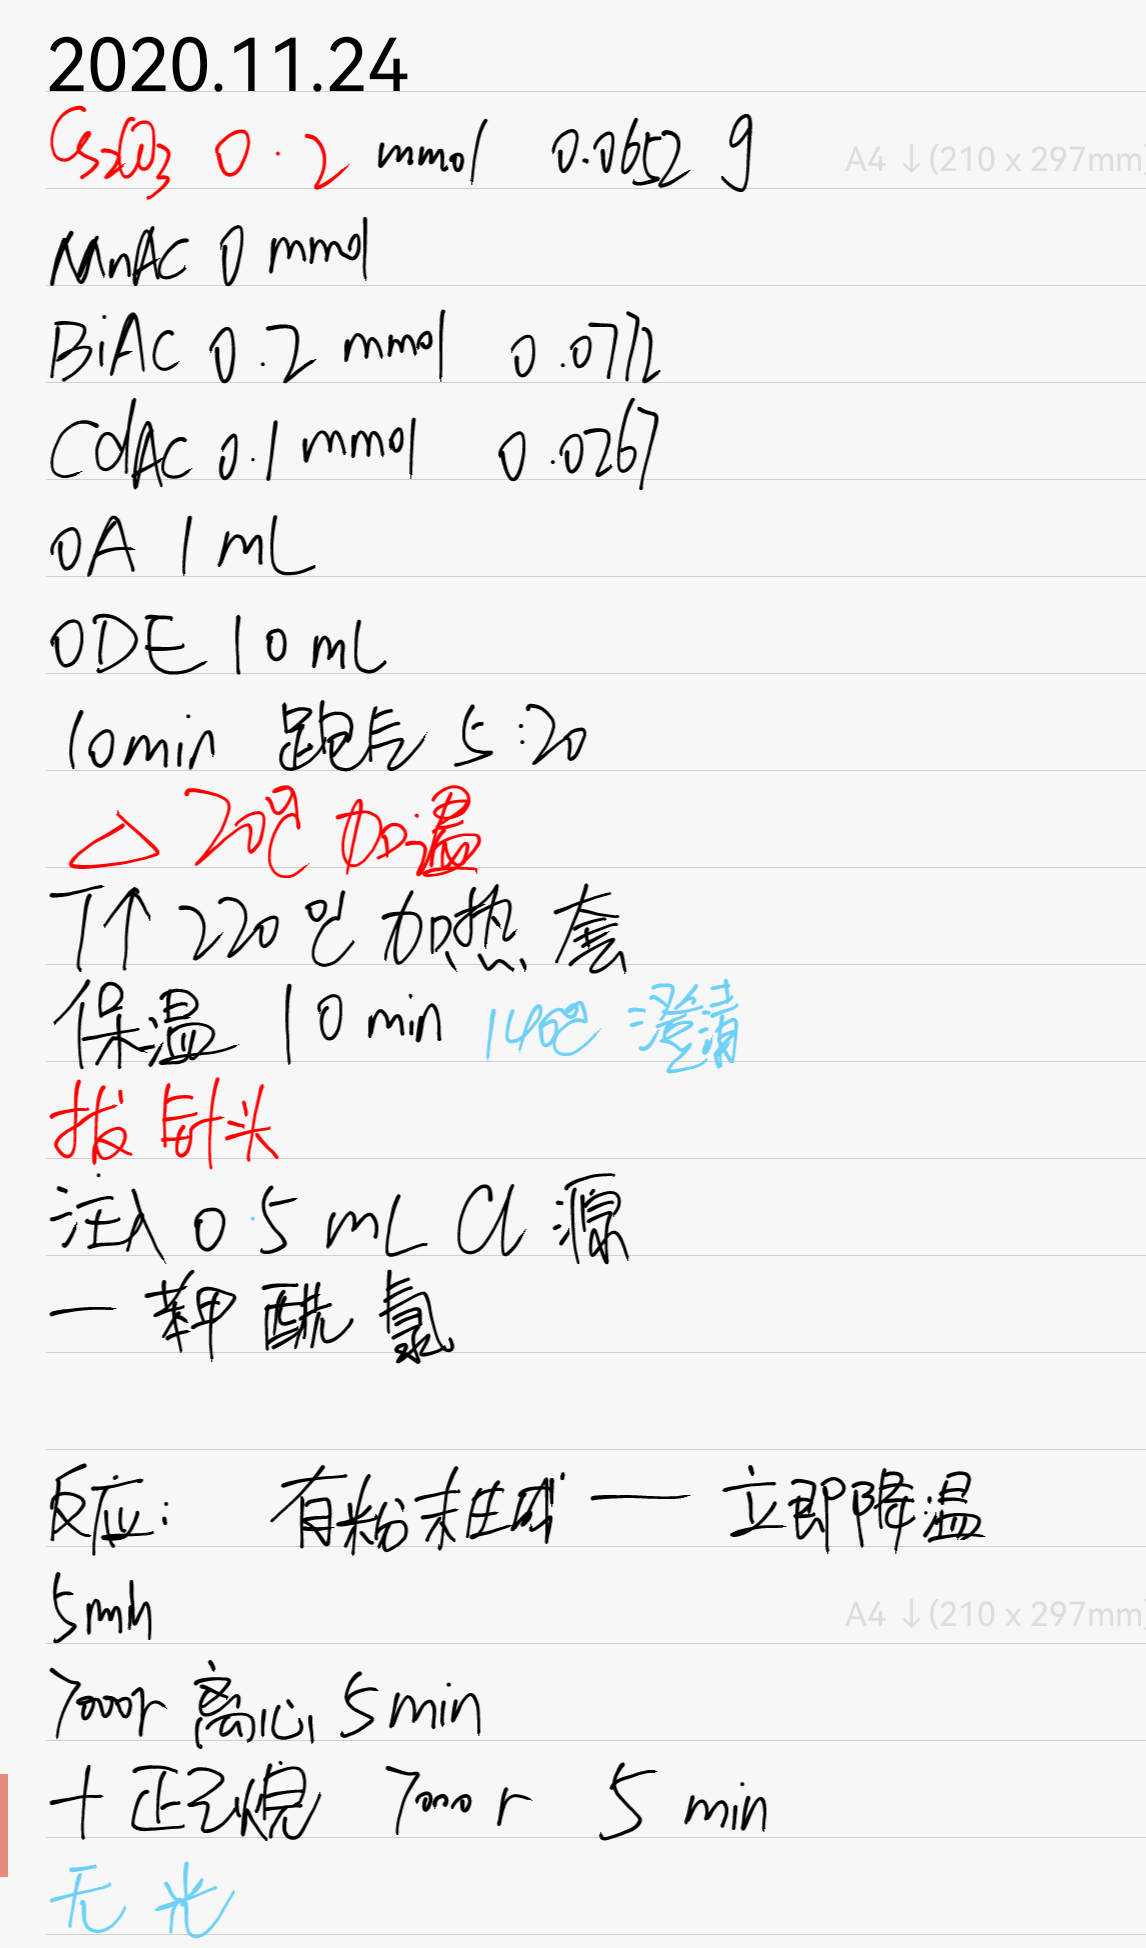 2020.11.24
Cs2CO3 0.2 mmol 0.0652 g
A4 ↓(210 x 297mm)
MnAC 0 mmol
BiAc 0.2 mmol 0.0772
CdAc 0.1 mmol 0.0267
OA 1 mL
ODE 10 mL
10min 跑气 5:20
△ 20℃ 加温
T↑ 220℃ 加热套
保温 10 min 140℃ 澄清
拔针头
注入 0.5 mL Cl 源
— 苯甲酰氯
反应: 有粉末生成 — 立即降温
5min
A4 ↓(210 x 297mm)
7000r 离心 5min
+ 正己烷 7000 r 5 min
无光